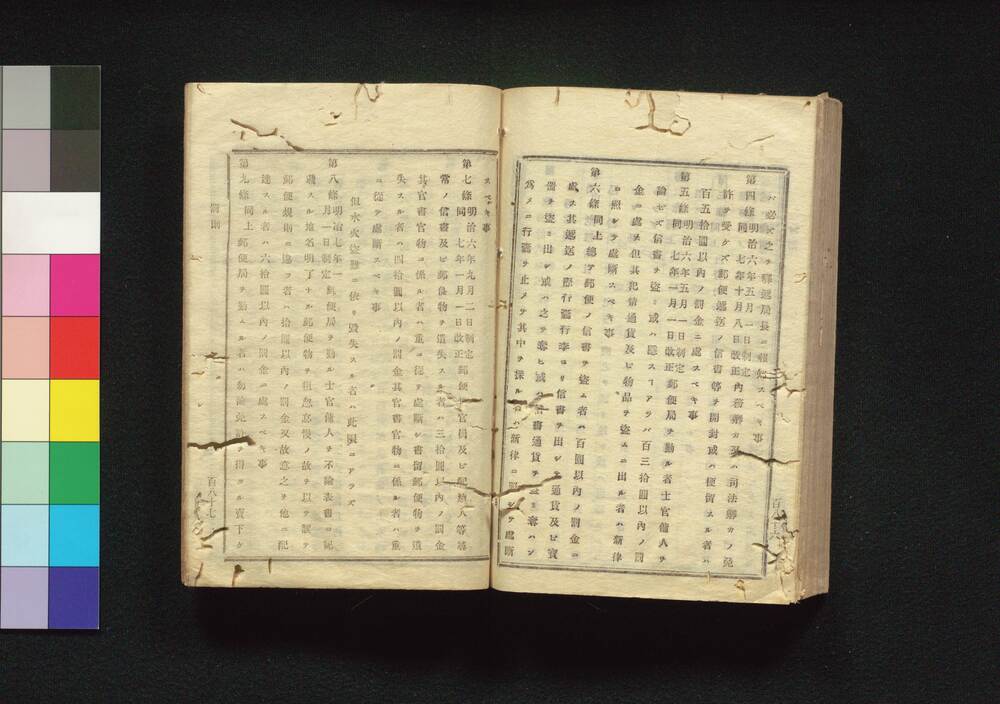 ハ必ズ之ヲ驛遞局長ニ報知スベキ事
第四條明治六年五月一日制定同七年十月八日改正內務卿カ又ハ司法卿カノ免
許ヲ受ケズ郵便遞送ノ信書等ヲ開封或ハ使留スル者ハ
百五拾圓以內ノ罰金ニ處スベキ事
第五條明治六年五月一日制定同七年一月一日改正郵便局ヲ勤ル者士官傭人ヲ
論ゼズ信書ヲ盜ミ或ハ隱ス アラバ百三拾圓以內ノ罰
金ニ處ス但其犯情通貨及ビ物品ヲ盜ムニ出ル者ハ新律
ニ照シテ處斷スベキ事
第六條同上總テ郵便ノ信書ヲ盜ム者ハ百圓以內ノ罰金ニ
處ス其遞送ノ際行 行李ヨリ信書ヲ出シテ通貨及ビ寶
貨ヲ盜ミ出シ或ハ之ヲ奪ヒ或ハ信書通貨ヲ ミ奪ハン
爲メニ行 ヲ止メテ其中ヲ探ル者ハ新律ニ照シテ處斷
スベキ事
第七條明治六年九月二日制定同七年一月一日改正郵便ノ官員及ビ配達人等尋
常ノ信書及ビ郵便物ヲ遺失スル者ハ三拾圓以內ノ罰金
其官書官物ニ係ル者ハ重ニ從ヲ處斷シ書留郵便物ヲ遺
失スル者ハ四拾圓以內ノ罰金其官書官物ニ係ル者ハ重
ニ從ヲ處斷スベキ事
但水火盜難ニ依リ毀失スル者ハ此限ニアラズ
第八條明治七年一月一日制定郵便局ヲ勤ル士官傭人ヲ不論表書ニ記
載スル地名明了ナル郵便物ヲ粗忽怠慢ノ故ヲ以テ誤ヲ
郵便規則ニ違フ者ハ拾圓以內ノ罰金又故意之ヲ他ニ配
達スル者ハ六拾圓以內ノ罰金ニ處スベキ事
第九條同上郵便局ヲ勤ムル者ハ勿論免許ヲ得タル賣下ケ
罰則
百八十七